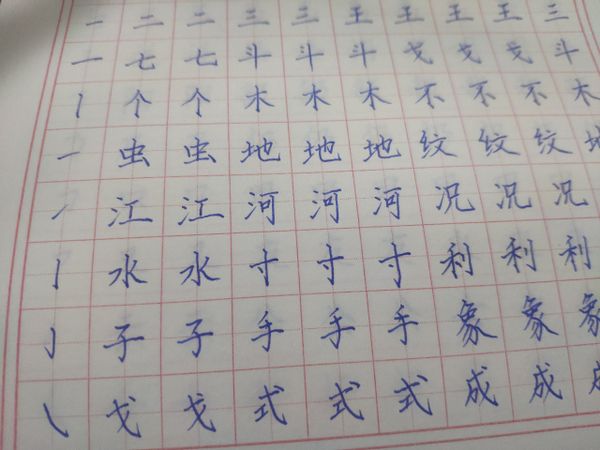 一 二 二 三 三 三 王 王 王 王 三
一 七 七 斗 斗 斗 戈 戈 戈 斗
丨 个 个 木 木 木 不 不 不 木
一 虫 虫 地 地 地 纹 纹 纹 地
㇀ 江 江 河 河 河 况 况 况
亅 水 水 寸 寸 寸 利 利 利
㇁ 子 子 手 手 手 象 象 象
㇂ 戈 戈 式 式 式 成 成